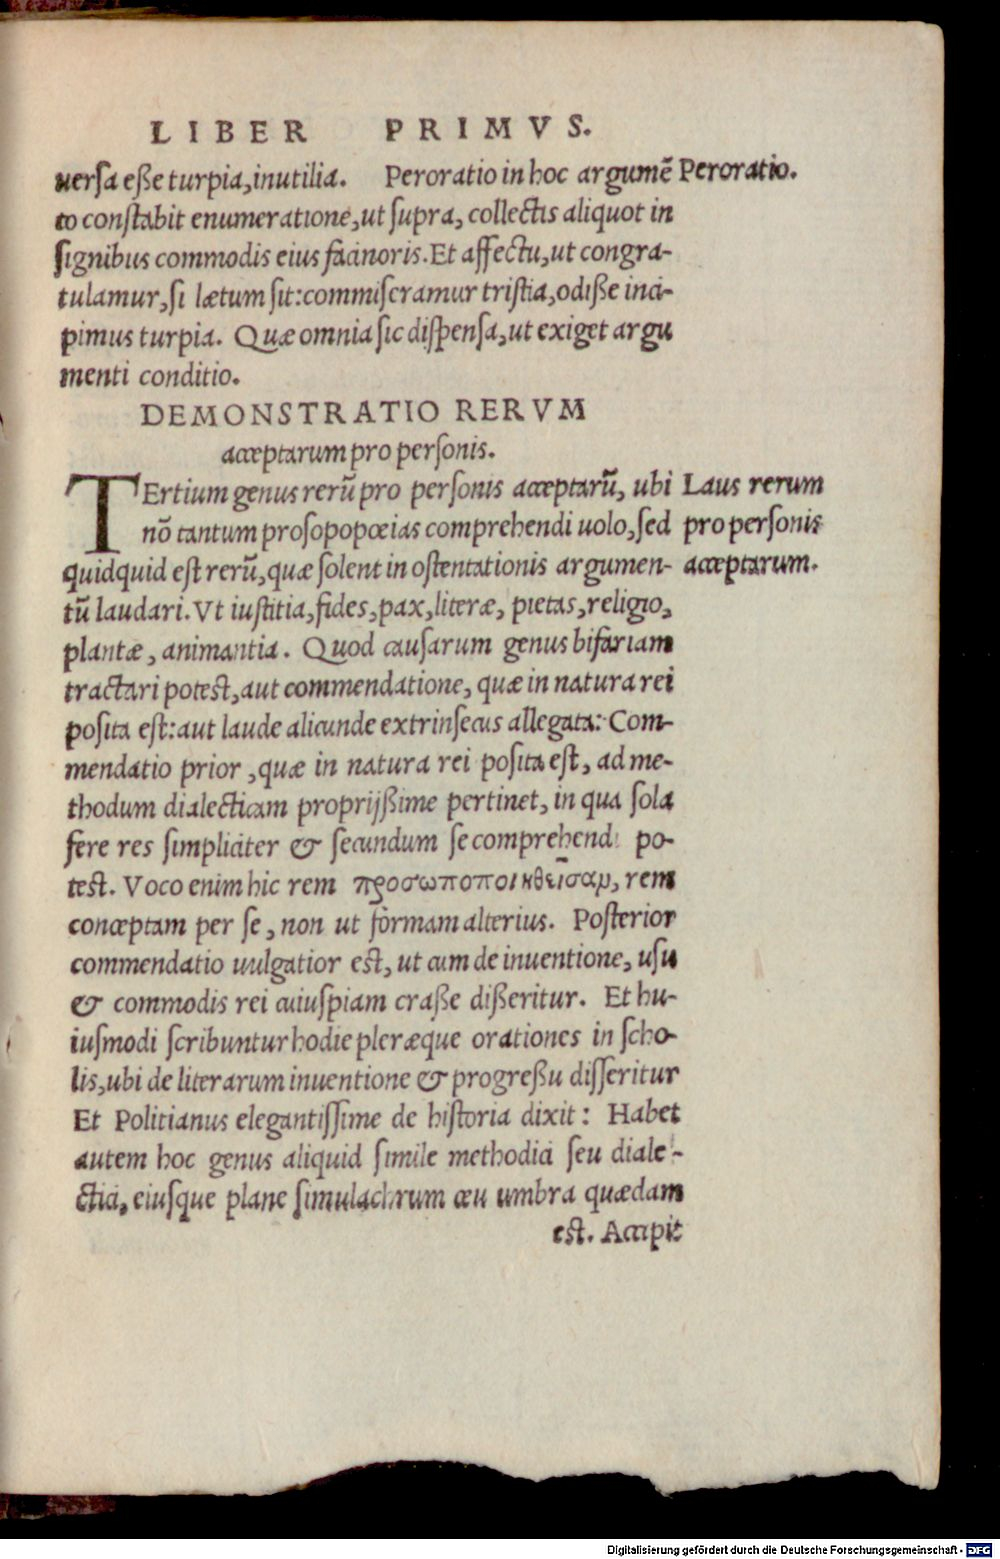 LIBER PRIMVS.
uersa eße turpia, inutilia. Peroratio in hoc argumẽ
Peroratio.
to constabit enumeratione, ut supra, collectis aliquot in
signibus commodis eius facinoris. Et affectu, ut congra-
tulamur, si lætum sit: commiseramur tristia, odiße inci-
pimus turpia. Quæ omnia sic dispensa, ut exiget argu
menti conditio.
DEMONSTRATIO RERVM
acceptarum pro personis.
TErtium genus rerũ pro personis acceptarũ, ubi
nõ tantum prosopopœias comprehendi uolo, sed
quidquid est rerũ, quæ solent in ostentationis argumen-
Laus rerum
pro personis
acceptarum.
tũ laudari. Vt iustitia, fides, pax, literæ, pietas, religio,
plantæ, animantia. Quod causarum genus bifariam
tractari potest, aut commendatione, quæ in natura rei
posita est: aut laude alicunde extrinsecus allegata: Com-
mendatio prior, quæ in natura rei posita est, ad me-
thodum dialecticam proprijßime pertinet, in qua sola
fere res simpliciter & secundum se comprehendi po-
test. Voco enim hic rem προσωποποιηθεῖσαν, rem
conceptam per se, non ut formam alterius. Posterior
commendatio uulgatior est, ut cum de inuentione, usu
& commodis rei cuiuspiam craße dißeritur. Et hu-
iusmodi scribuntur hodie pleræque orationes in scho-
lis, ubi de literarum inuentione & progreßu disseritur
Et Politianus elegantissime de historia dixit: Habet
autem hoc genus aliquid simile methodici seu diale-
ctici, eiusque plane simulachrum ceu umbra quædam
est. Accipit
Digitalisierung gefördert durch die Deutsche Forschungsgemeinschaft - DFG